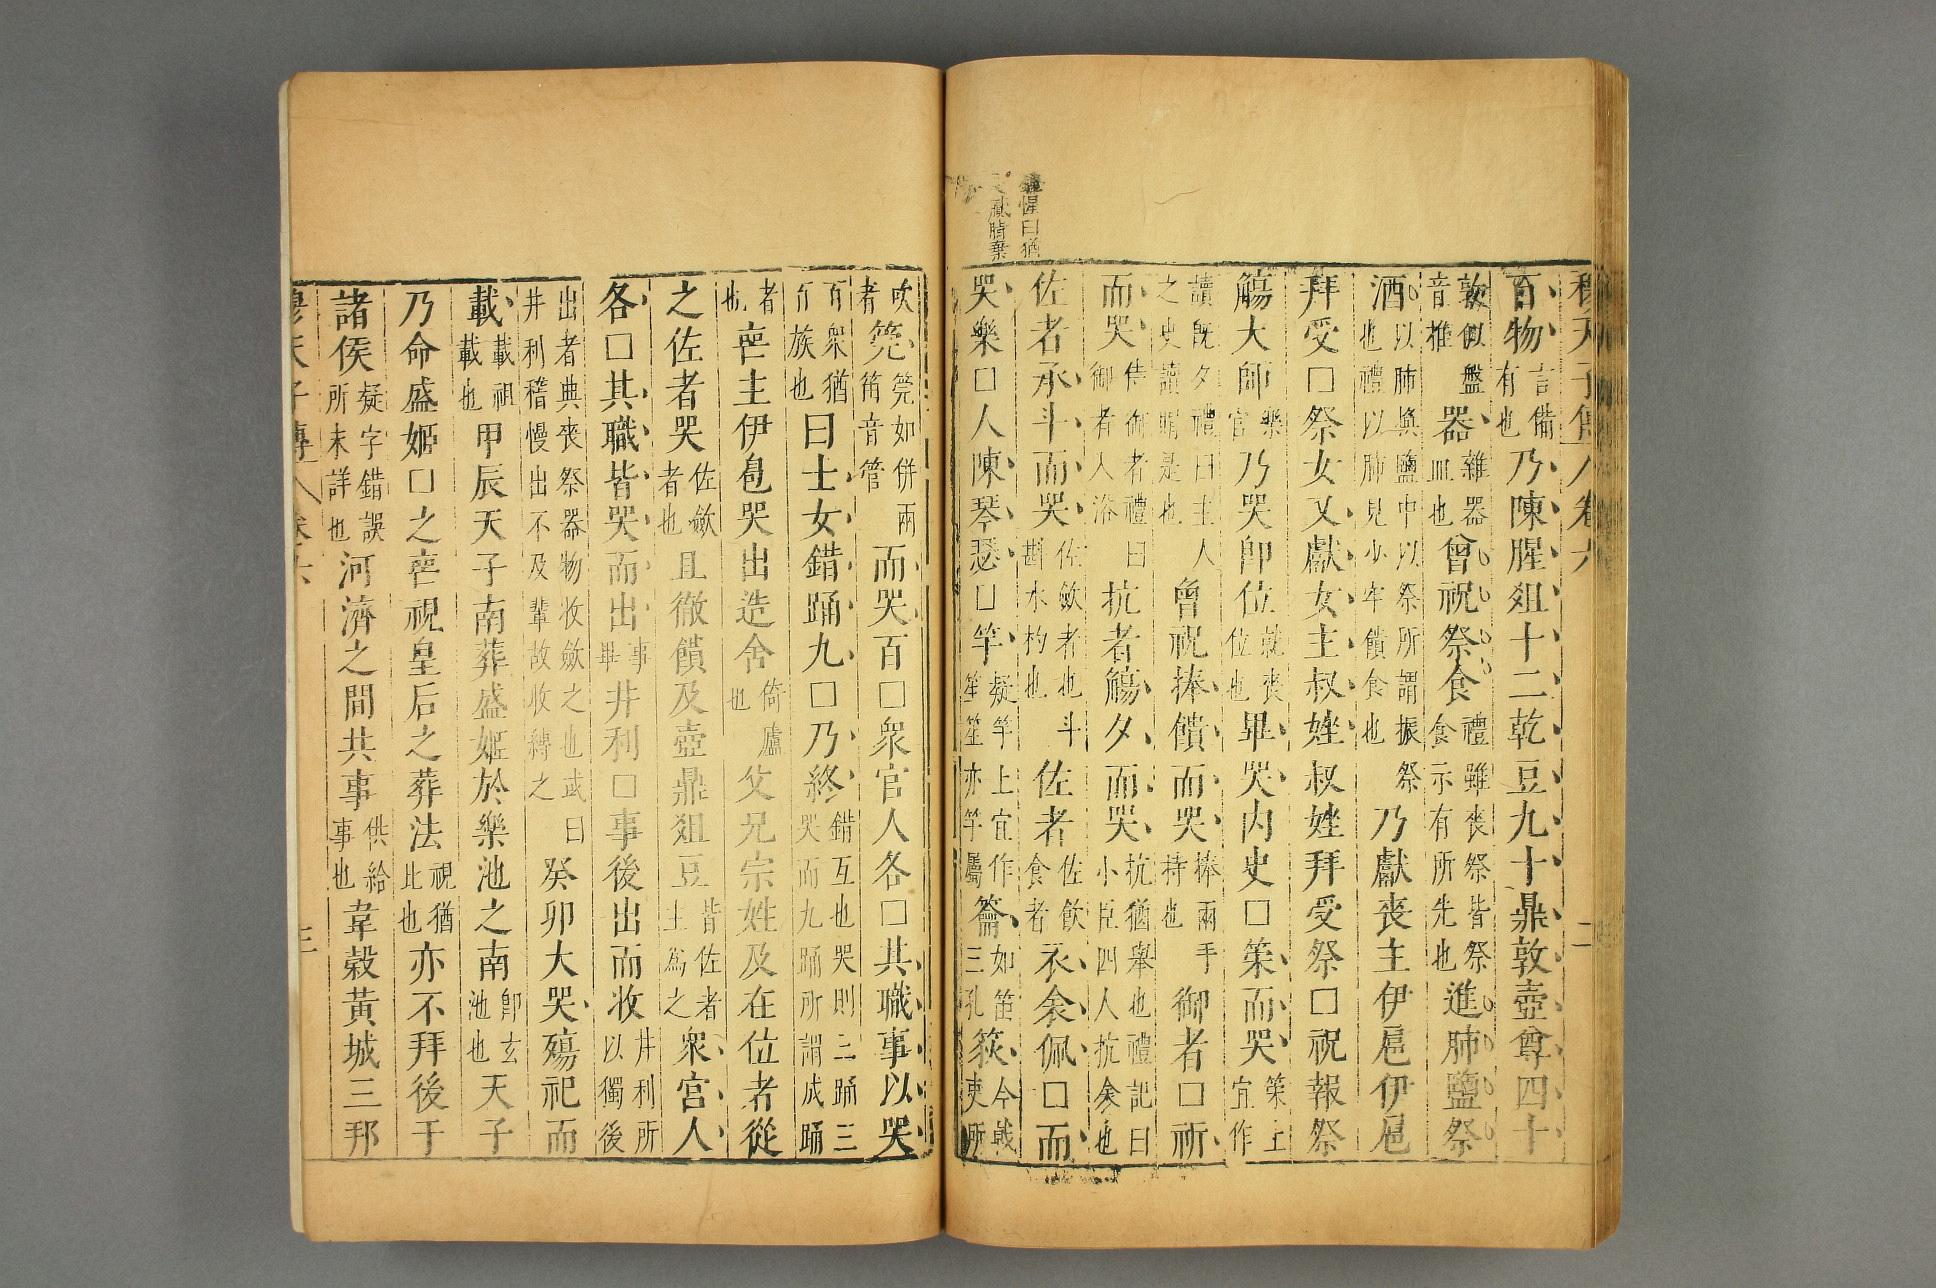 穆天子傳 卷六 二
百物言備有也乃陳腥俎十二乾豆九十鼎敦壺尊四十
敦似盤音椎器雜器皿也曾祝祭食禮雖喪祭皆祭食示有所先也進肺鹽祭
酒以肺與鹽中以祭所謂振祭也禮以肺見少牢饋食也乃獻喪主伊扈伊扈
拜受□祭女又獻女主叔㛗叔㛗拜受祭□祝報祭
觴大師樂官乃哭即位就喪位也畢哭内史□策而哭策上宜作
讀既夕禮曰主人之史讀賵是也曾祝捧饋而哭捧兩手持也御者□祈
而哭侍御者禮曰御者入浴抗者觴夕而哭抗猶舉也禮記曰小臣四人抗衾也
佐者承斗而哭佐斂者也斗斟水杓也佐者佐飲食者衣衾佩□而
哭樂□人陳琴瑟□竽疑竽上宜作笙笙亦竽屬籥如笛三孔篍今戟吏所
鍾惺曰猶
吹者筦筦如併兩笛音管而哭百□衆官人各□其職事以哭
百衆猶百族也曰士女錯踊九□乃終錯互也哭則三踊三哭而九踊所謂成踊
者也喪主伊扈哭出造舍倚廬也父兄宗姓及在位者從
之佐者哭佐斂者也且徹饋及壺鼎俎豆皆佐者主為之衆宫人
各□其職皆哭而出事畢井利□事後出而收井利所以獨後
出者典喪祭器物收斂之也或曰井利稽慢出不及輩故收縛之癸卯大哭殤祀而
載載祖載也甲辰天子南葬盛姬於樂池之南即玄池也天子
乃命盛姬□之喪視皇后之葬法視猶比也亦不拜後于
諸侯疑字錯誤所未詳也河濟之間共事供給事也韋縠黃城三邦
穆天子傳 卷六 三